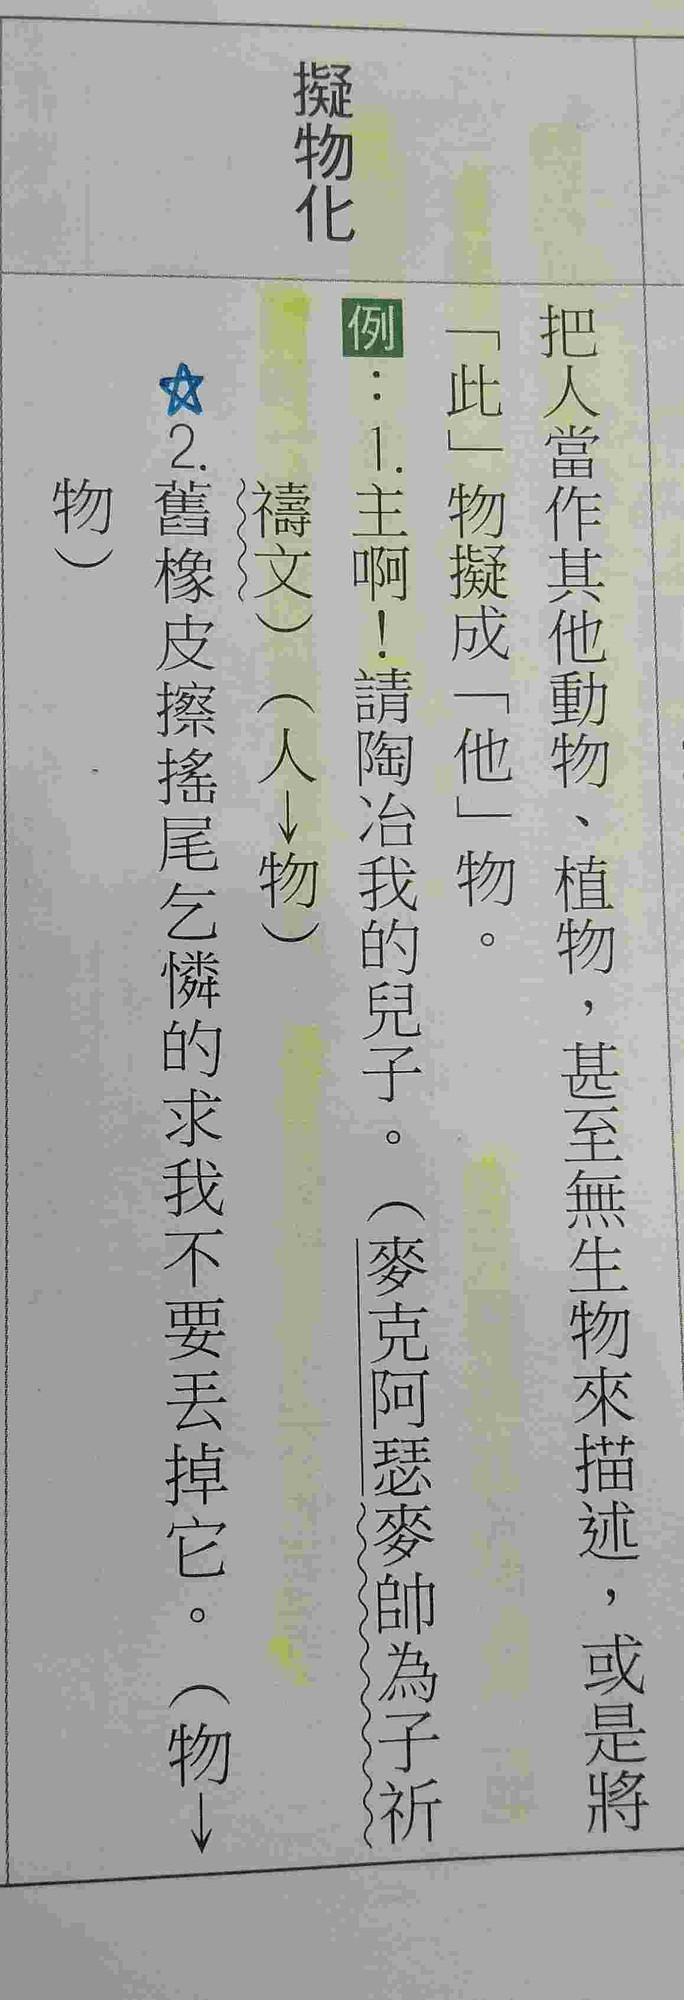 擬物化
把人當作其他動物、植物，甚至無生物來描述，或是將
「此」物擬成「他」物。
例：1.主啊！請陶冶我的兒子。（麥克阿瑟麥帥為子祈
禱文）（人→物）
☆2.舊橡皮擦搖尾乞憐的求我不要丟掉它。（物→
物）